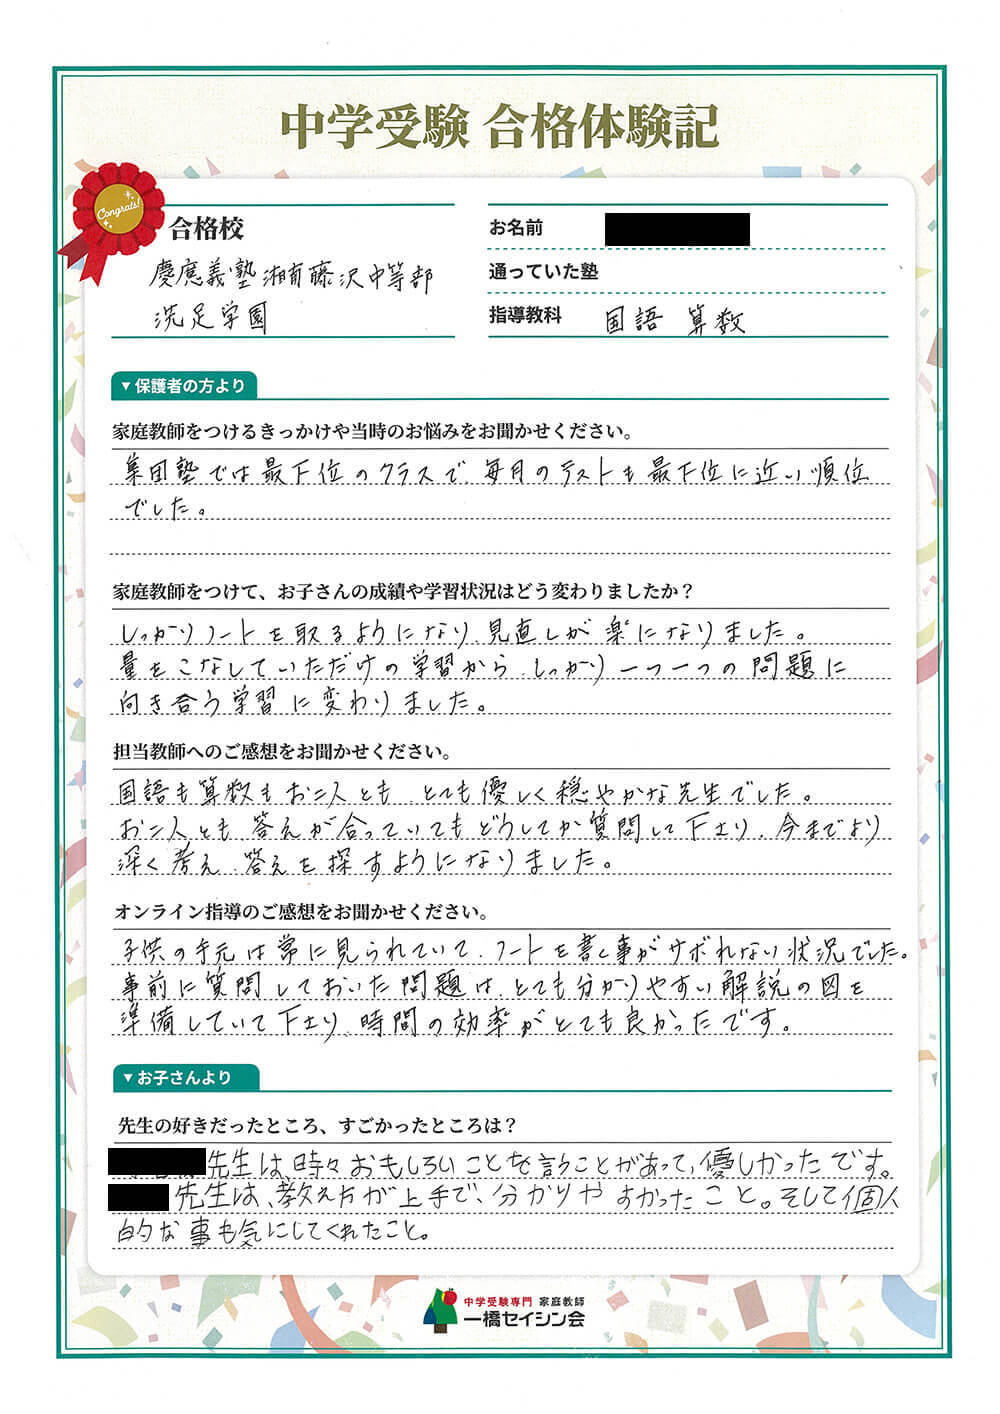 中学受験 合格体験記
Congrats!
合格校
慶應義塾湘南藤沢中等部
洗足学園
お名前
通っていた塾
指導教科 国語 算数
▼保護者の方より
家庭教師をつけるきっかけや当時のお悩みをお聞かせください。
集団塾では最下位のクラスで、毎月のテストも最下位に近い順位
でした。
家庭教師をつけて、お子さんの成績や学習状況はどう変わりましたか？
しっかりノートを取るようになり、見直しが楽になりました。
量をこなしていただけの学習から、しっかり一つ一つの問題に
向き合う学習に変わりました。
担当教師へのご感想をお聞かせください。
国語も算数もお二人とも、とても優しく穏やかな先生でした。
お二人とも、答えが合っていてもどうしてか質問して下さり、今までより
深く考え、答えを探すようになりました。
オンライン指導のご感想をお聞かせください。
子供の手元は常に見られていて、ノートを書く事がサボれない状況でした。
事前に質問しておいた問題は、とても分かりやすい解説の図を
準備していて下さり、時間の効率がとても良かったです。
▼お子さんより
先生の好きだったところ、すごかったところは？
先生は、時々おもしろいことを言うことがあって、優しかったです。
先生は、教え方が上手で、分かりやすかったこと。そして個人
的な事も気にしてくれたこと。
中学受験専門 家庭教師
一橋セイシン会